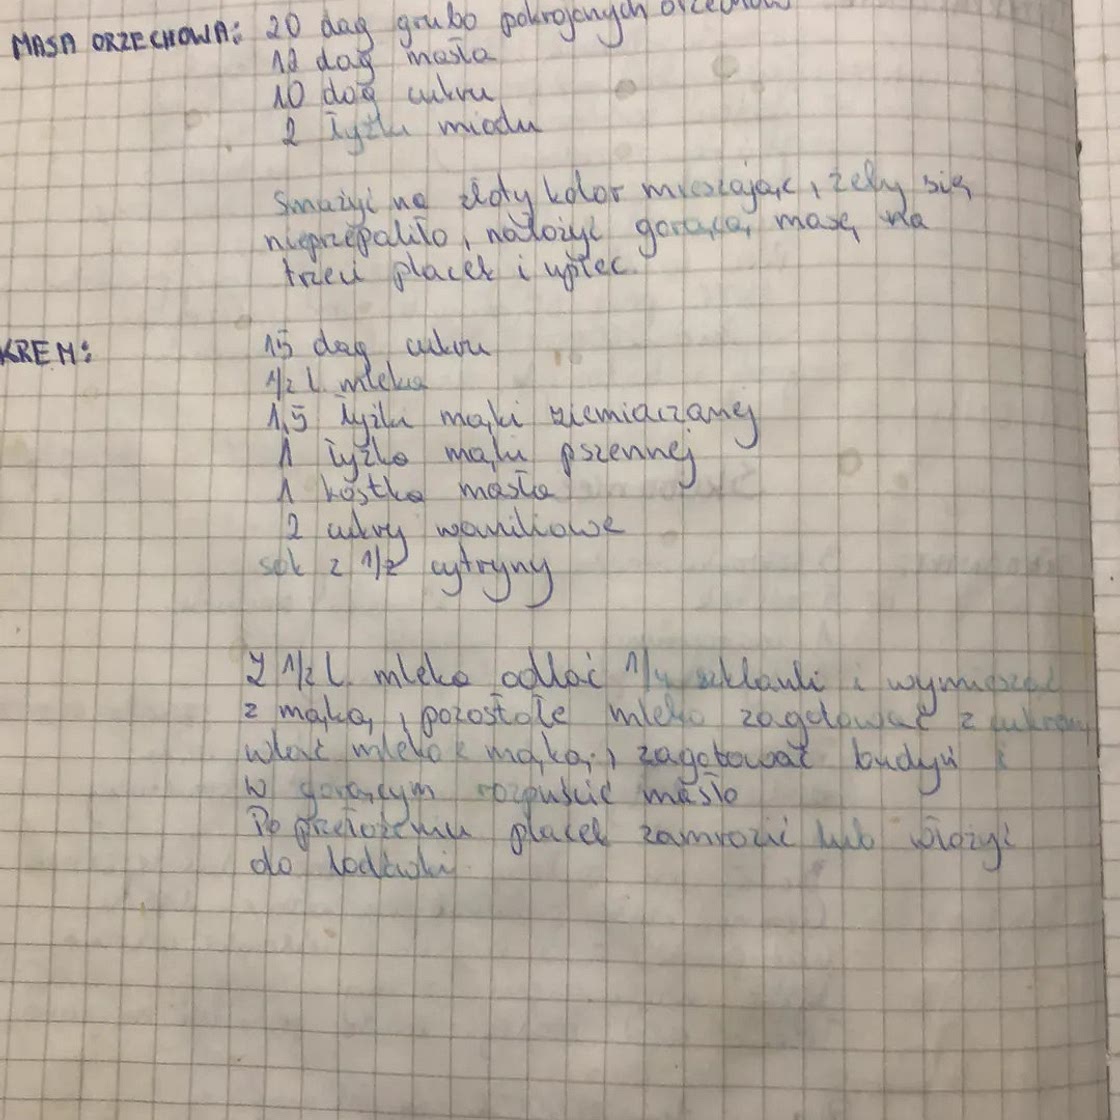 MASA ORZECHOWA: 20 dag grubo pokrojonych orzechów
12 dag masła
10 dag cukru
2 łyżki miodu
Smażyć na złoty kolor mieszając, żeby się
nieprzepaliło, nałożyć gorącą masę na
trzeci placek i upiec.
KREM: 15 dag cukru
1/2 l. mleka
1,5 łyżki mąki ziemiaczanej
1 łyżka mąki pszennej
1 kostka masła
2 cukry waniliowe
sok z 1/2 cytryny
Z 1/2 l. mleka odlać 1/4 szklanki i wymieszać
z mąką, pozostałe mleko zagotować z cukrem
wlać mleko z mąką, zagotować budyń i
w gorącym rozpuścić masło
Po przełożeniu placek zamrozić lub włożyć
do lodówki.